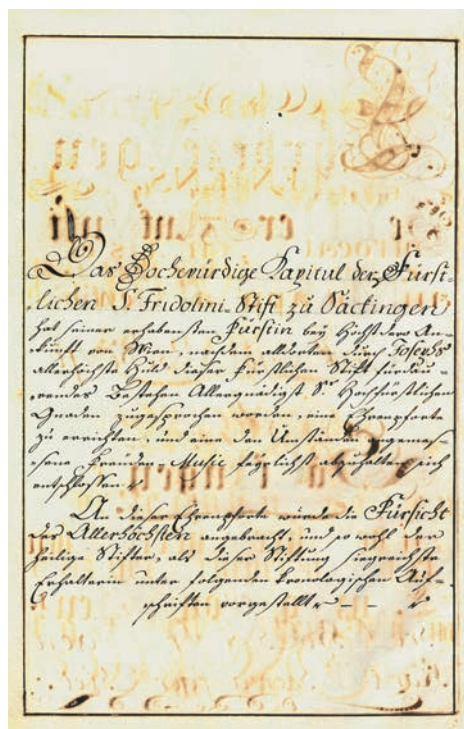 Das Hochwürdige Kapitul der Fürst-
lichen S. Fridolini-Stift zu Säckingen
hat seiner erhabensten Fürstin bey Höchst dero An-
kunft von Wien, nachdem alldorten durch Josephs
allerhöchste Huld dieser fürstlichen Stift fürdau-
rendes Bestehen Allergnädigst Sr Hochfürstlichen
Gnaden zugesprochen worden, eine Ehrenpforte
zu errichten, und eine den Umständen angemes-
sene Freuden-Music feyrlichst abzuhalten sich
entschlossen
An dieser Ehrenpforte wurde die Fürsicht
des Allerhöchsten angebracht, und so wohl der
heilige Stifter, als dieser Stiftung siegreichste
Erhalterin unter folgenden kronologischen Auf-
schriften vorgestellt